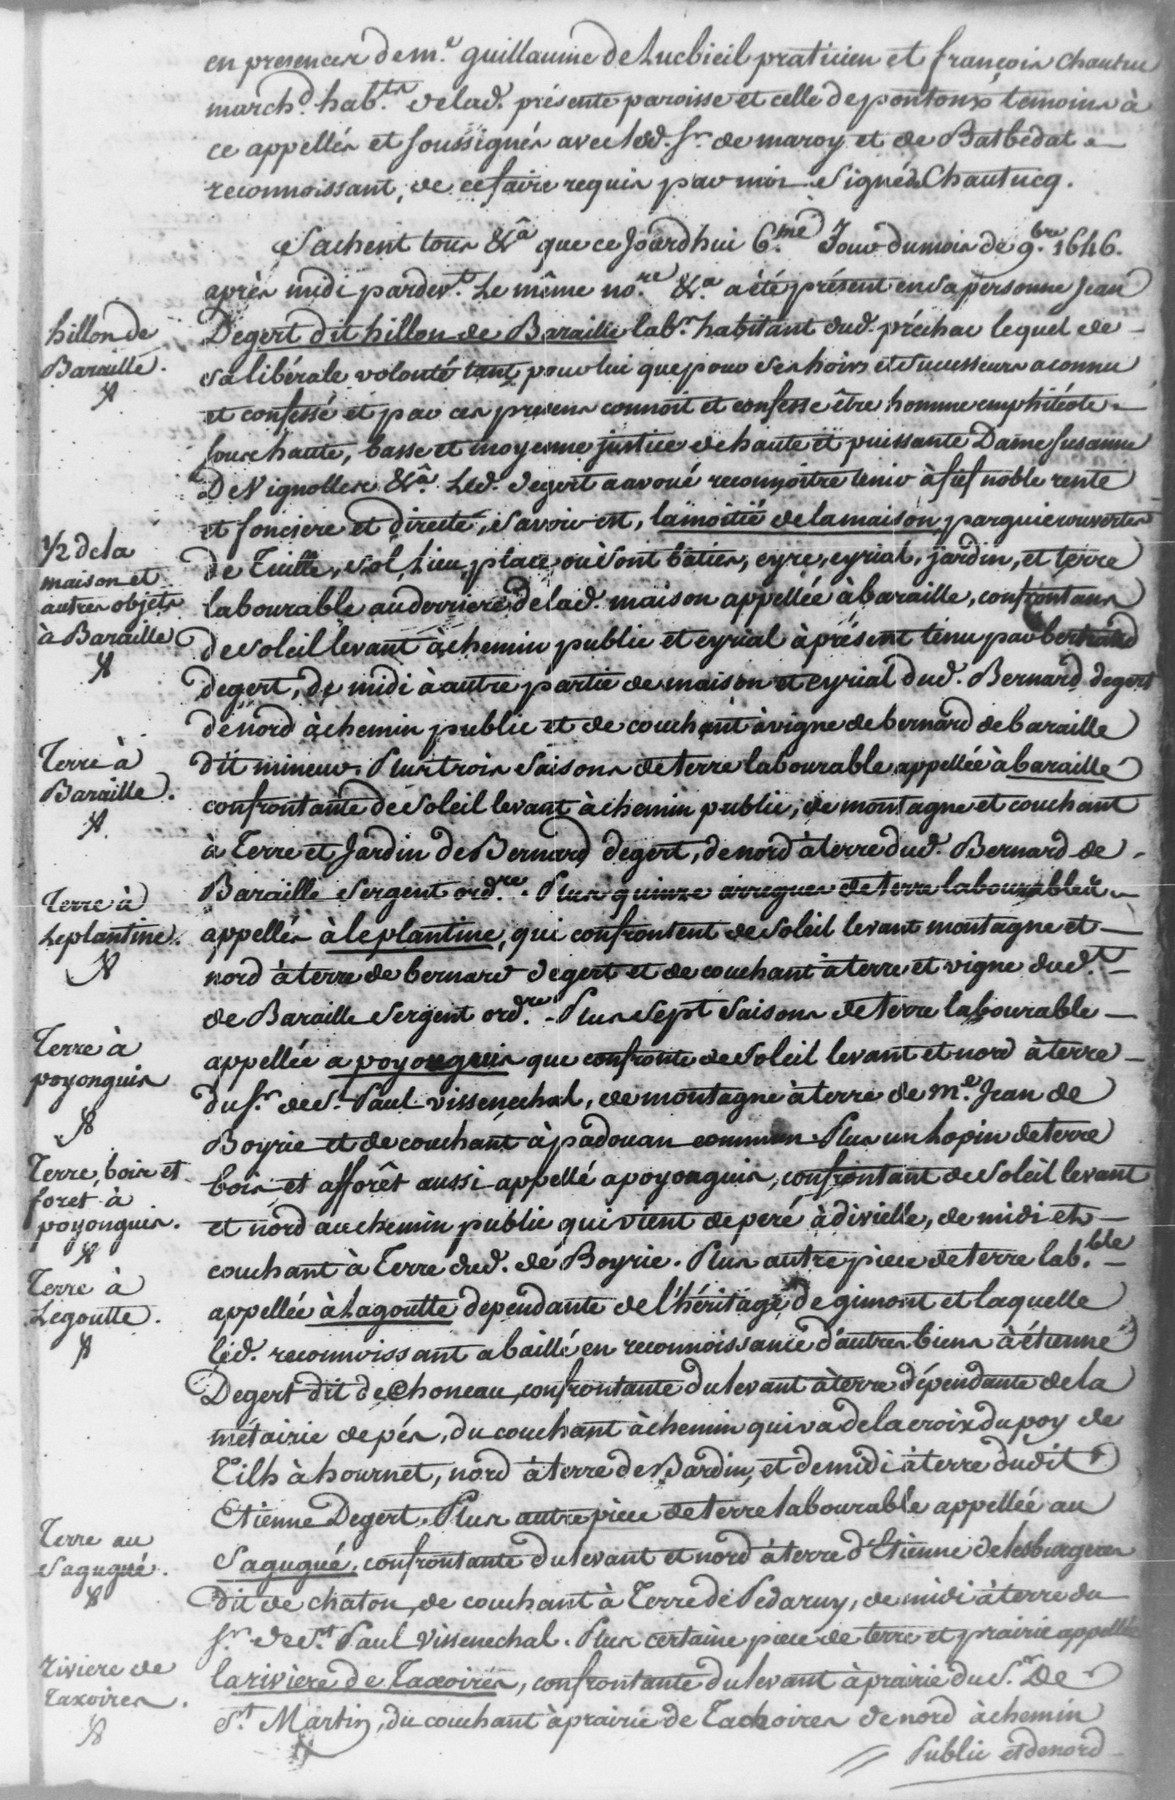 en presences de m.e guillaume de Lucbieil praticien et françois chautuc
march.d hab.ts de lad. présente paroisse et celle de pontonx temoins à
ce appellés et soussignés avec led. s.r de maroy et de Batbedat
reconnoissant, de ce faire requis par moi Signés Chautucq.
Sachent tous &.a que ce Jourdhui 6.me Jour du mois de 9.bre 1646.
après midi pardev.t Le même no.re &.a a été présent en sa personne Jean
hillon de
Baraille.
Degert dit hillon de Baraille lab.r habitant dud. préchac lequel de
sa libérale volonté tant pour lui que pour ses hoirs et successeurs a connu
et confessé et par ces presens connoit et confesse être homme emphitéote
sous haute, basse et moyenne justice de haute et puissante Dame susanne
De Vignolles &.a Led. degert a avoué reconnoitre tenir à fief noble rente
et fonciere et directe, savoir est, la moitié de la maison parguie couvertes
1/2 de la
maison et
autres objets
à Baraille
de Tuille, sol, Lieu, place où sont baties, eyre, eyrial, jardin, et terre
labourable au derriere de lad. maison appellée à baraille, confrontans
de soleil levant à chemin public et eyrial à présent tenu par bertrand
degert, de midi à autre partie de maison et eyrial dud. Bernard degert
de nord à chemin public et de couchant à vigne de bernard de baraille
Terre à
Baraille.
dit mineur. Plus trois saisons de terre labourable appellée à baraille
confrontante de soleil levant à chemin public, de montagne et couchant
à Terre et Jardin de Bernard degert, de nord à terre dud. Bernard de
Baraille Sergent ord.re. Plus quinze arregues de terre labourables
Terre à
Leplantine.
appellés à leplantine, qui confrontent de soleil levant montagne et
nord à terre de bernard degert et de couchant à terre et vigne dud.t
de Baraille Sergent ord.re. Plus sept saisons de terre labourable
Terre à
poyonguis
appellée a poyonguis que confronte de soleil levant et nord à terre
du s.r de S.t Paul vissenechal, de montagne à terre de m.e Jean de
Boyrie et de couchant à padouan commun. Plus un Lopin de terre
Terre, bois et
foret à
poyonguis.
bois et afforêt aussi appellé a poyonguis, confrontant de soleil levant
et nord au chemin public qui vient de peré à divielle, de midi et
couchant à Terre dud. de Boyrie. Plus autre piece de terre lab.ble
Terre à
Legoutte.
appellée à Lagoutte dependante de l'héritage de gimont et laquelle
led. reconnoissant a baillé en reconnoissance d'autres biens à étienne
Degert dit de Choneau, confrontante du levant à terre dépendante de la
métairie de pés, du couchant à chemin qui va de la croix du poy de
Tilh à hournet, nord à terre de Bardin, et de midi à terre dudit
Etienne Degert. Plus autre piece de terre labourable appellée au
Terre au
Sagugué.
Sagugué, confrontante du levant et nord à terre d'Etienne de lesburgeres
dit de chaton, de couchant à Terre de Pedaruy, de midi à terre du
s.r de S.t Paul Vissenechal. Plus certaine piece de terre et prairie appellée
riviere de
Taxoires.
la rivière de Taxoires, confrontante du levant à prairie du S.r De
S.t Martin, du couchant à prairie de Tachoires de nord à chemin
Public et de nord